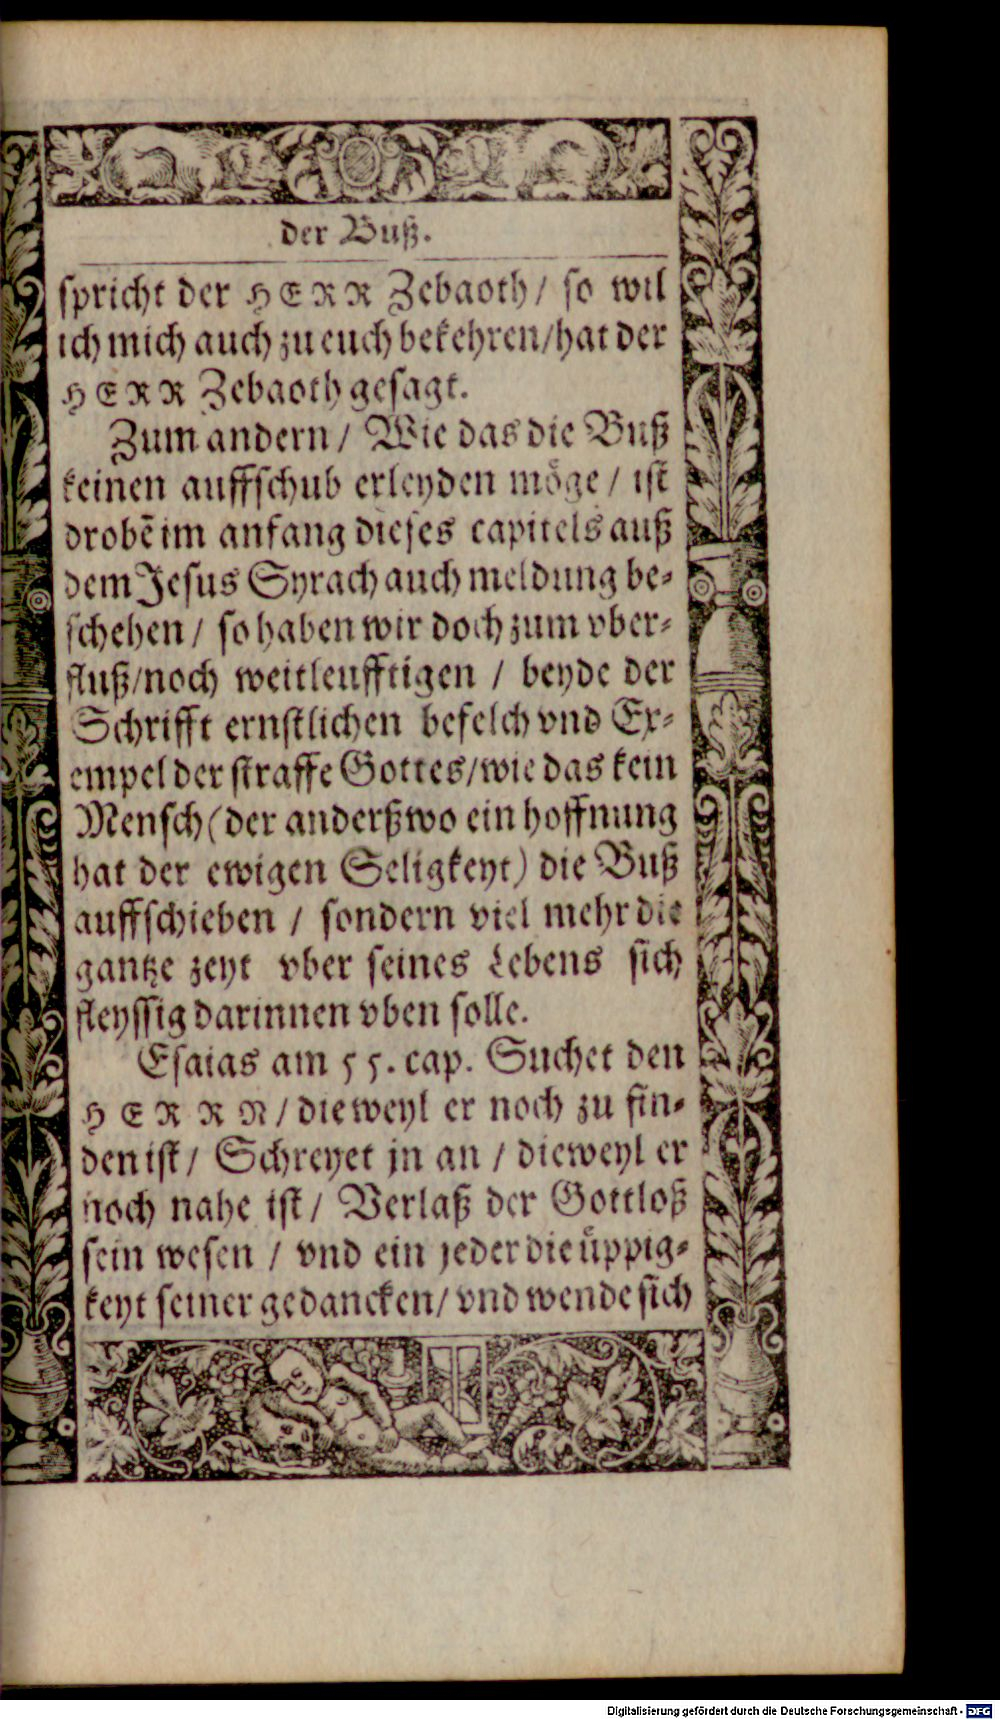 der Buß.
spricht der HERR Zebaoth / so wil
ich mich auch zu euch bekehren / hat der
HERR Zebaoth gesagt.
Zum andern / Wie das die Buß
keinen auffschub erleyden möge / ist
drobẽ im anfang dieses capitels auß
dem Jesus Syrach auch meldung be-
schehen / so haben wir doch zum vber-
fluß / noch weitleufftigen / beyde der
Schrifft ernstlichen befelch vnd Ex-
empel der straffe Gottes / wie das kein
Mensch (der anderßwo ein hoffnung
hat der ewigen Seligkeyt) die Buß
auffschieben / sondern viel mehr die
gantze zeyt vber seines Lebens sich
fleyssig darinnen vben solle.
Esaias am 55. cap. Suchet den
HERRN / dieweyl er noch zu fin-
den ist / Schreyet jn an / dieweyl er
noch nahe ist / Verlaß der Gottloß
sein wesen / vnd ein jeder die üppig-
keyt seiner gedancken / vnd wende sich
Digitalisierung gefördert durch die Deutsche Forschungsgemeinschaft - DFG